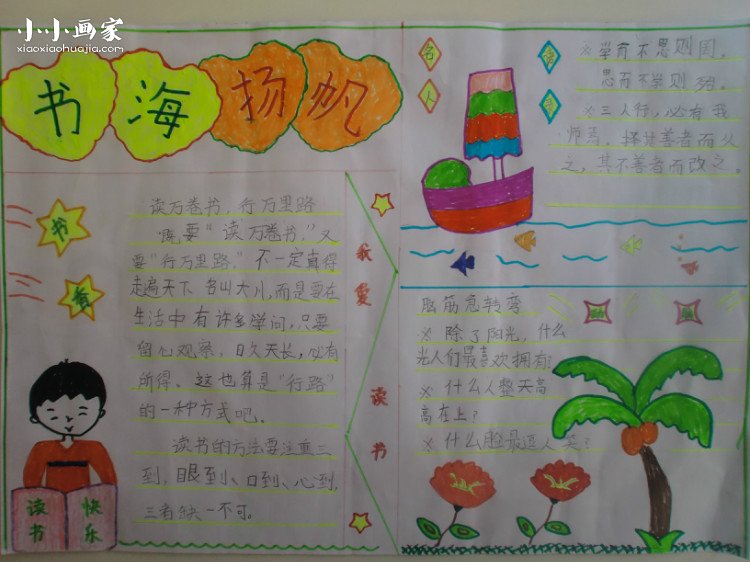 小小画家
xiaoxiaohuajia.com
书海扬帆
名人
名言
※学而不思则罔,
思而不学则殆。
※三人行,必有我
师焉。择其善者而从
之,其不善者而改之。
书
香
读万卷书,行万里路
"既要"读万卷书",又
要"行万里路,"不一定真得
走遍天下名山大川,而是要在
生活中有许多学问,只要
留心观察,日久天长,必有
所得。这也算是"行路"
的一种方式吧。
读书的方法要注重三
到,眼到、口到、心到,
三者缺一不可。
我爱读书
读书
快乐
脑筋急转弯
※除了阳光,什么
光人们最喜欢拥有?
※什么人整天高
高在上?
※什么脸最逗人笑?